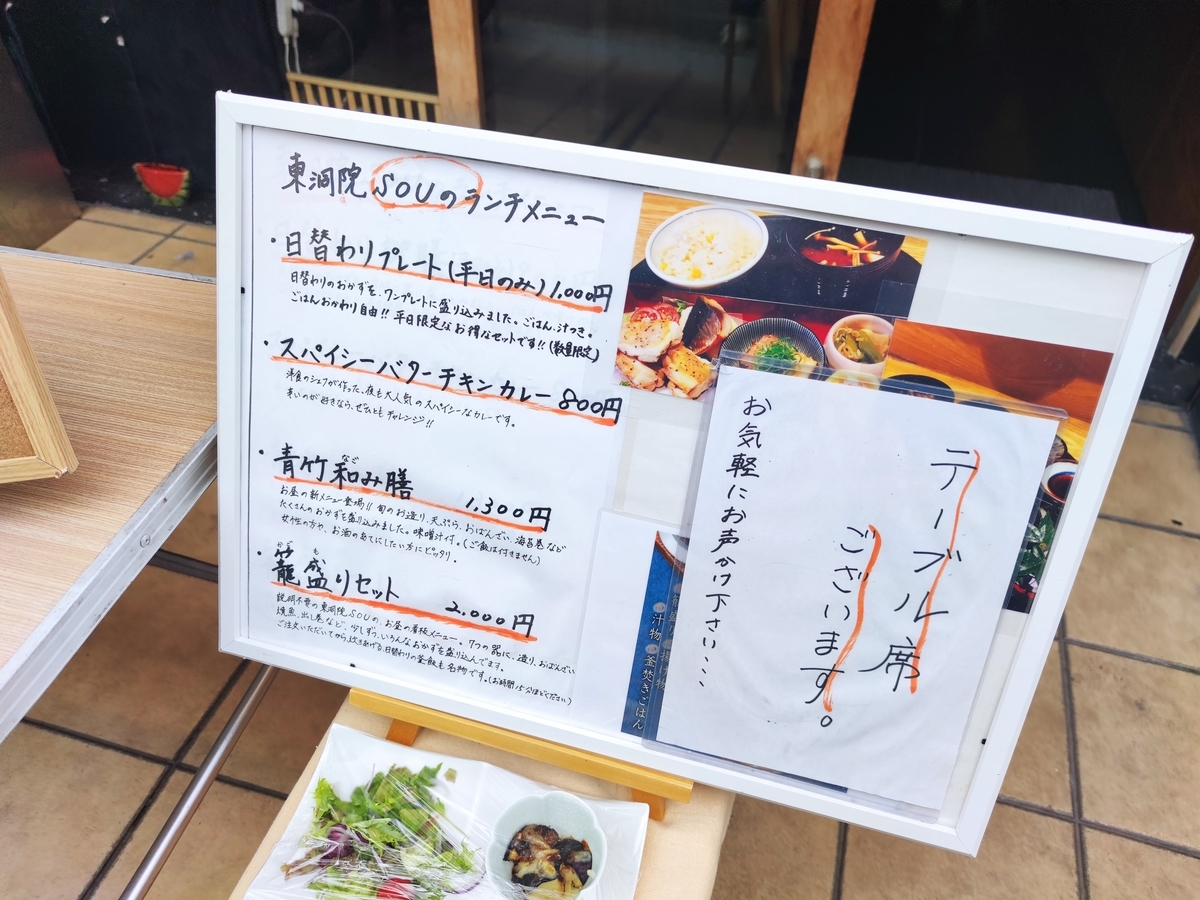 東洞院 SOUのランチメニュー
・日替わりプレート(平日のみ) 1,000円
日替わりのおかずを、ワンプレートに盛り込みました。ごはん、汁つき。
ごはんおかわり自由!! 平日限定なお得なセットです!!(数量限定)
・スパイシーバターチキンカレー 800円
洋食のシェフが作った、夜も大人気のスパイシーなカレーです。
辛いのが好きなら、ぜひともチャレンジ!!
・青竹和み膳 1,300円
なご
お昼の新メニュー登場!! 旬のお造り、天ぷら、おばんざい、海苔巻など
たくさんのおかずを盛り込みました。味噌汁付。(ご飯は付きません)
女性の方や、お酒のあてにしたい方にピッタリ。
・籠盛りセット 2,000円
かごも
説明不要の東洞院SOUの、お昼の看板メニュー。7つの器に、造り、おばんざい
焼魚、出し巻など、少しずついろんなおかずを盛り込んでます。
ご注文いただいてから、炊きあげる、日替わりの釜飯も名物です。(お時間15分ほどください)
テーブル席
ございます。
お気軽にお声かけ下さい、、、、
汁物
釜焚きごはん